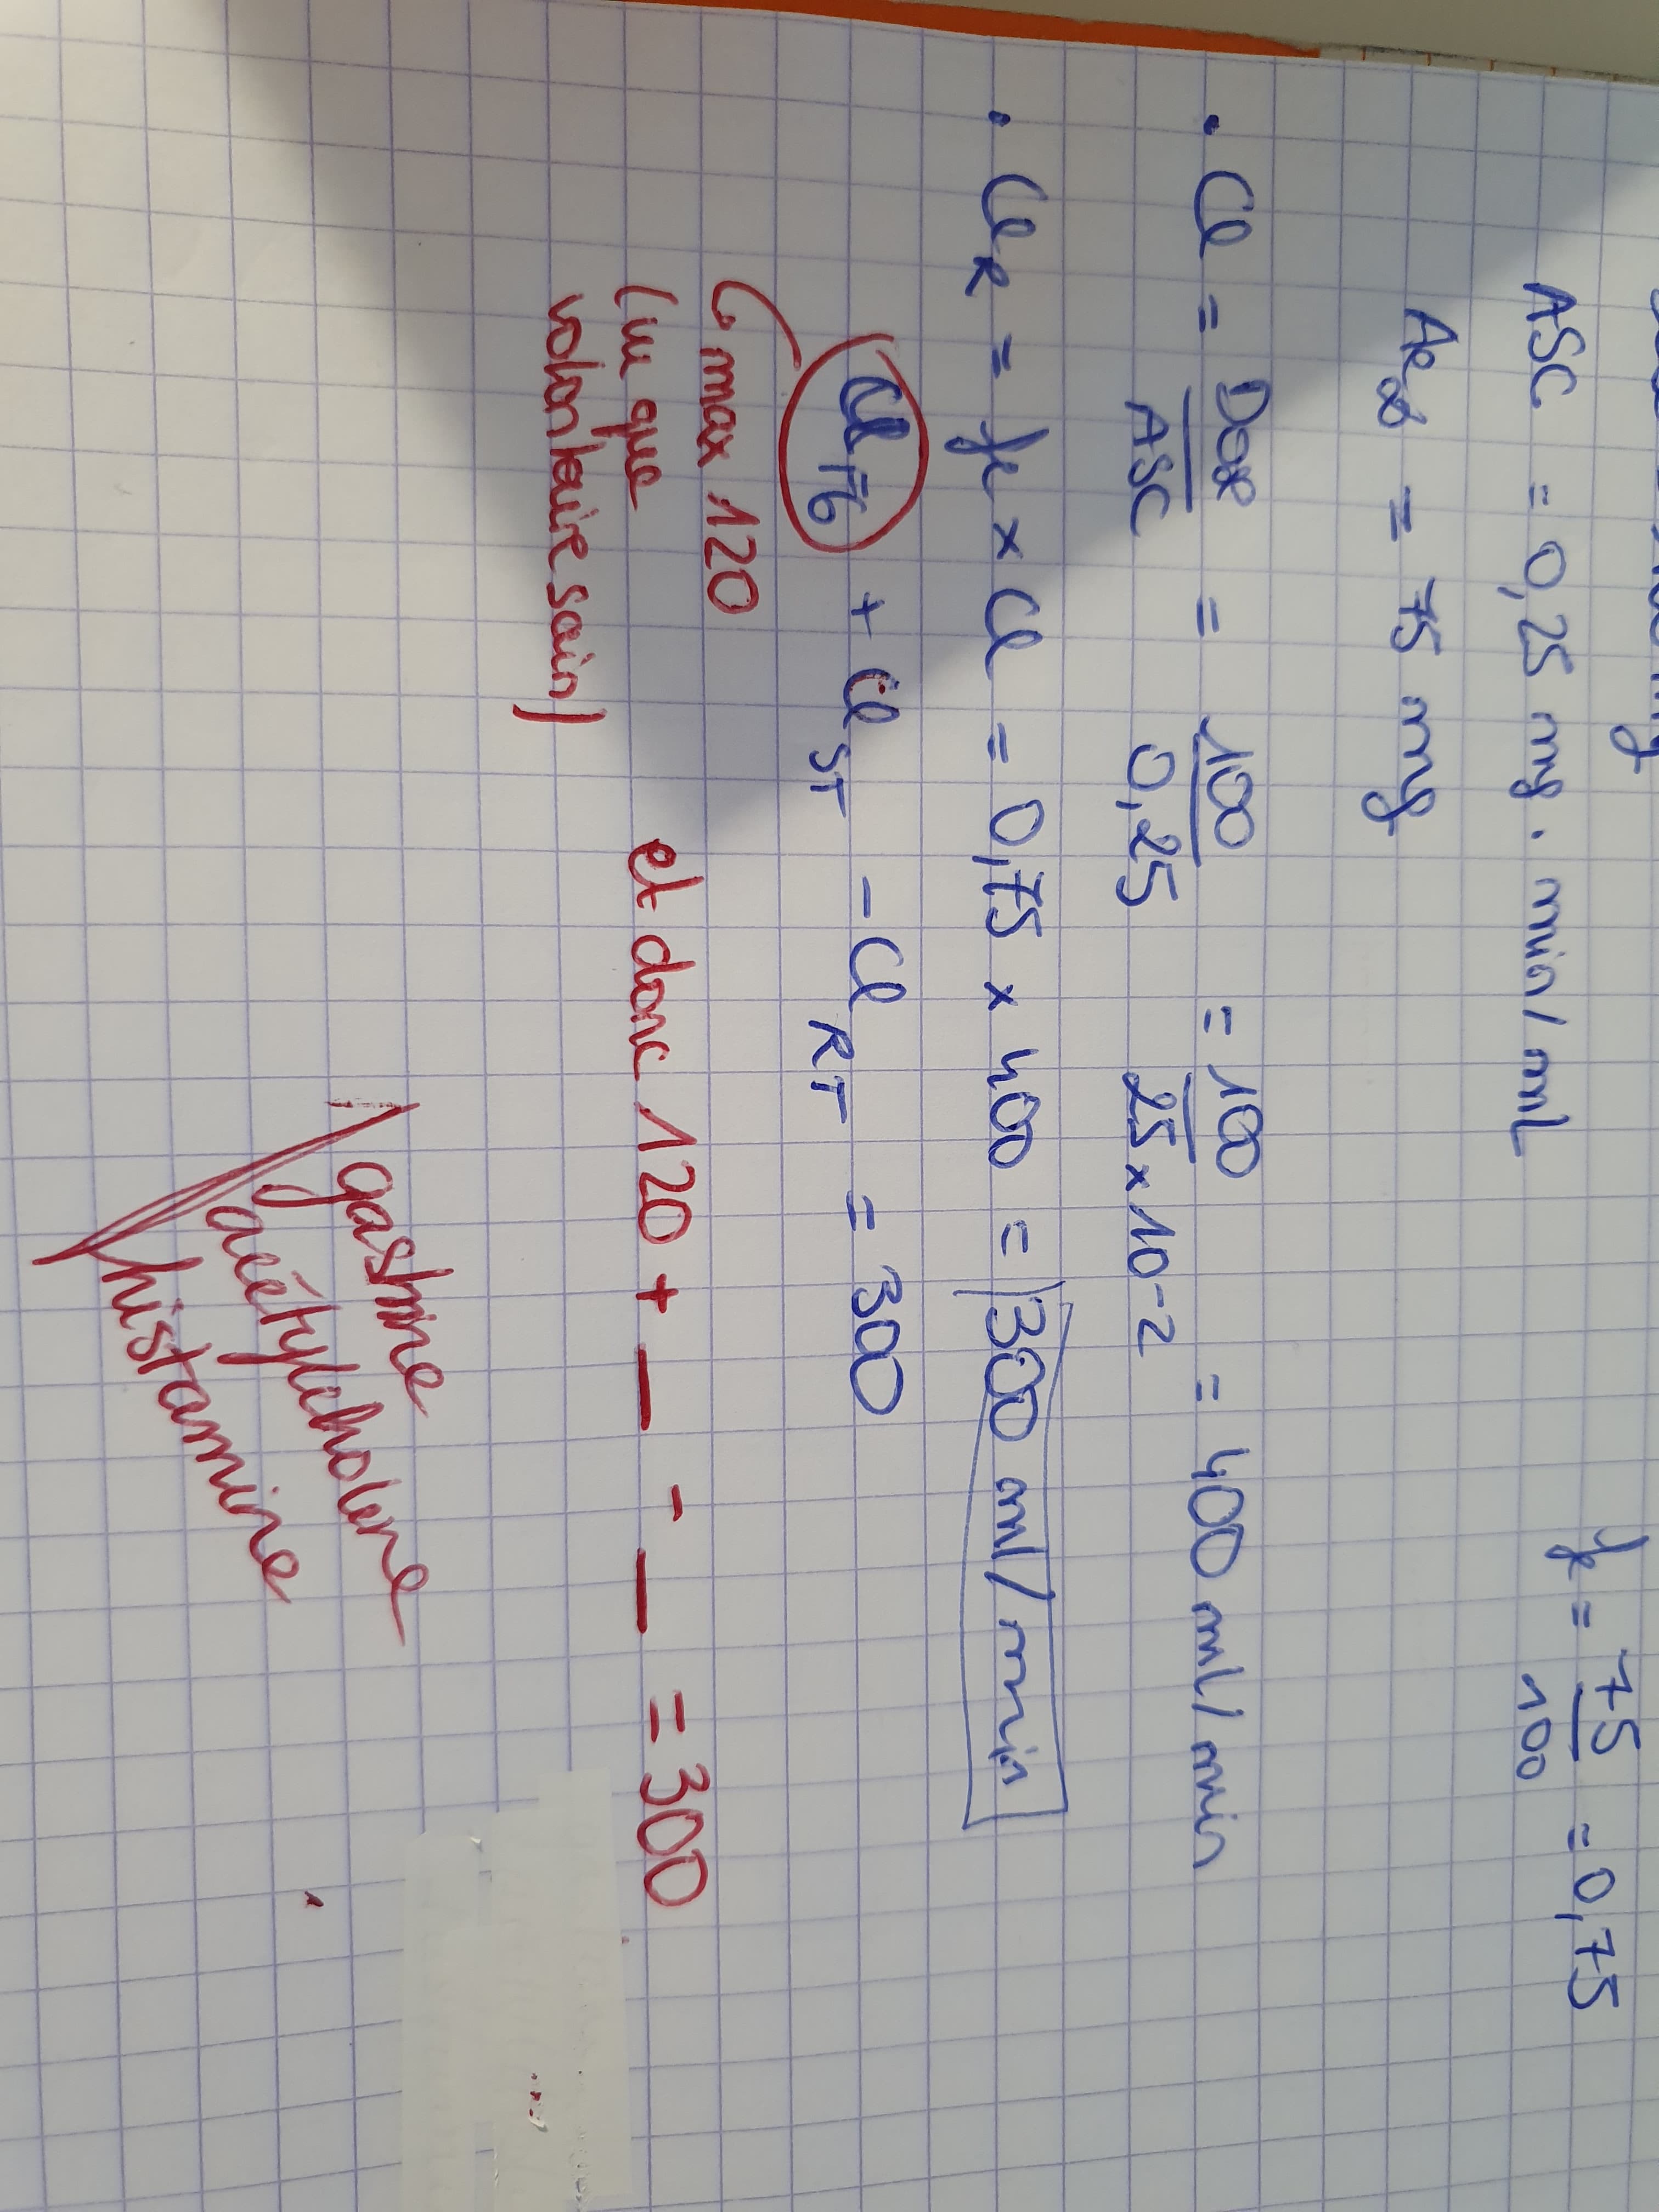 ASC = 0,25 mg . min / ml
fe = 75/100 = 0,75
Ae∞ = 75 mg
. Cl = Dose/ASC = 100/0,25 = 100/25 x 10⁻² = 400 ml/min
. ClR = fe x Cl = 0,75 x 400 = 300 ml/min
ClFG + ClST - ClRT = 300
↳ max 120
(vu que
volontaire sain)
et donc 120 + _ - _ = 300
gastrine
acétylcholine
histamine